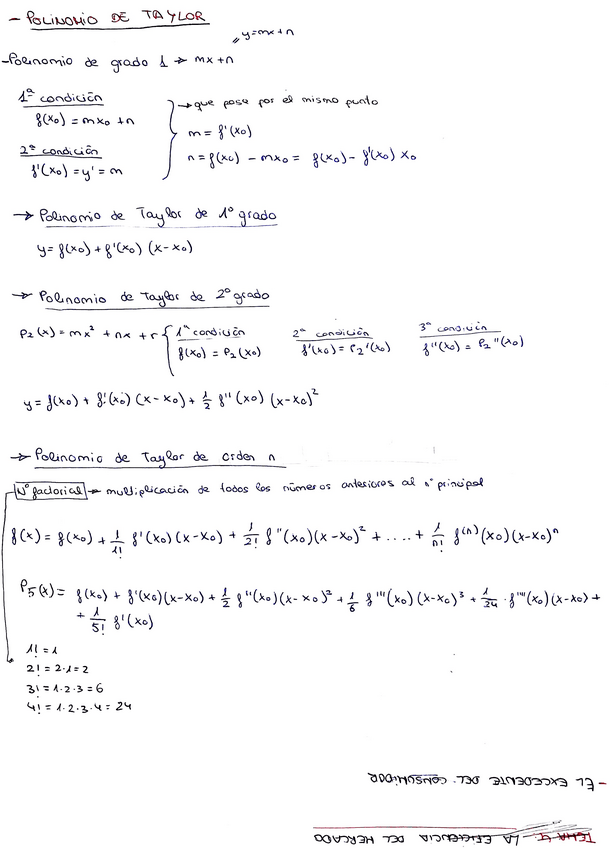 - POLINOMIO DE TAYLOR
y=mx+n
-Polinomio de grado 1 → mx+n
1ª condición
f(x₀)=mx₀+n
2ª condición
f'(x₀)=y'=m
→ que pase por el mismo punto
m=f'(x₀)
n=f(x₀)-mx₀= f(x₀)- f'(x₀) x₀
→ Polinomio de Taylor de 1º grado
y=f(x₀)+f'(x₀) (x-x₀)
→ Polinomio de Taylor de 2º grado
P₂(x)=mx²+nx+r
1ª condición
f(x₀)=P₂(x₀)
2ª condición
f'(x₀)=P₂'(x₀)
3ª condición
f''(x₀)=P₂''(x₀)
y=f(x₀)+f'(x₀) (x-x₀)+ 1/2 f''(x₀) (x-x₀)²
→ Polinomio de Taylor de orden n
Nº factorial → multiplicación de todos los números anteriores al nº principal
f(x)= f(x₀)+ 1/1! f'(x₀)(x-x₀)+ 1/2! f''(x₀)(x-x₀)²+....+ 1/n! f⁽ⁿ⁾(x₀)(x-x₀)ⁿ
P₅(x)= f(x₀)+f'(x₀)(x-x₀)+ 1/2 f''(x₀)(x-x₀)²+ 1/6 f'''(x₀)(x-x₀)³+ 1/24 · f''''(x₀)(x-x₀)+
+ 1/5! f'(x₀)
1!=1
2!=2·1=2
3!=1·2·3=6
4!=1·2·3·4=24
- EL EXCEDENTE DEL CONSUMIDOR
TEMA 4.- LA EFICIENCIA DEL MERCADO